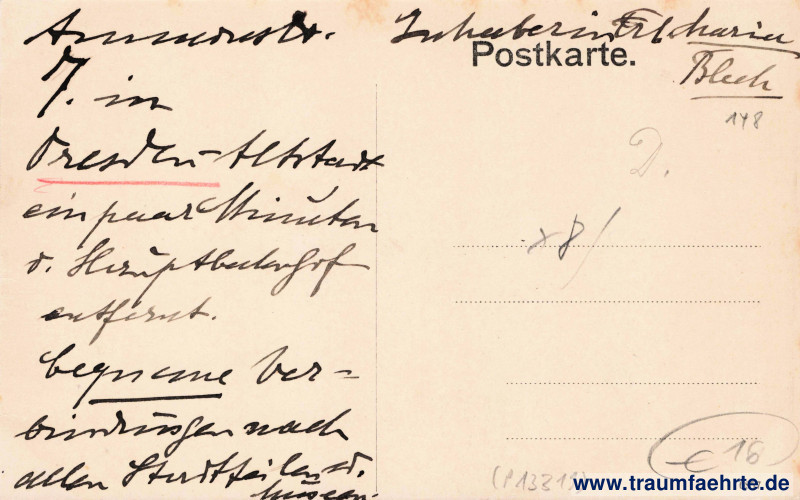 Ammonstr.
7. in
Dresden-Altstadt
ein paar Minuten
v. Hauptbahnhof
entfernt.
bequeme Ver=
bindungen nach
allen Stadtteilen d.
Inhaberin Frl Maria
Blech
Postkarte.
148
D.
x8/
16
(P13319)
www.traumfaehrte.de